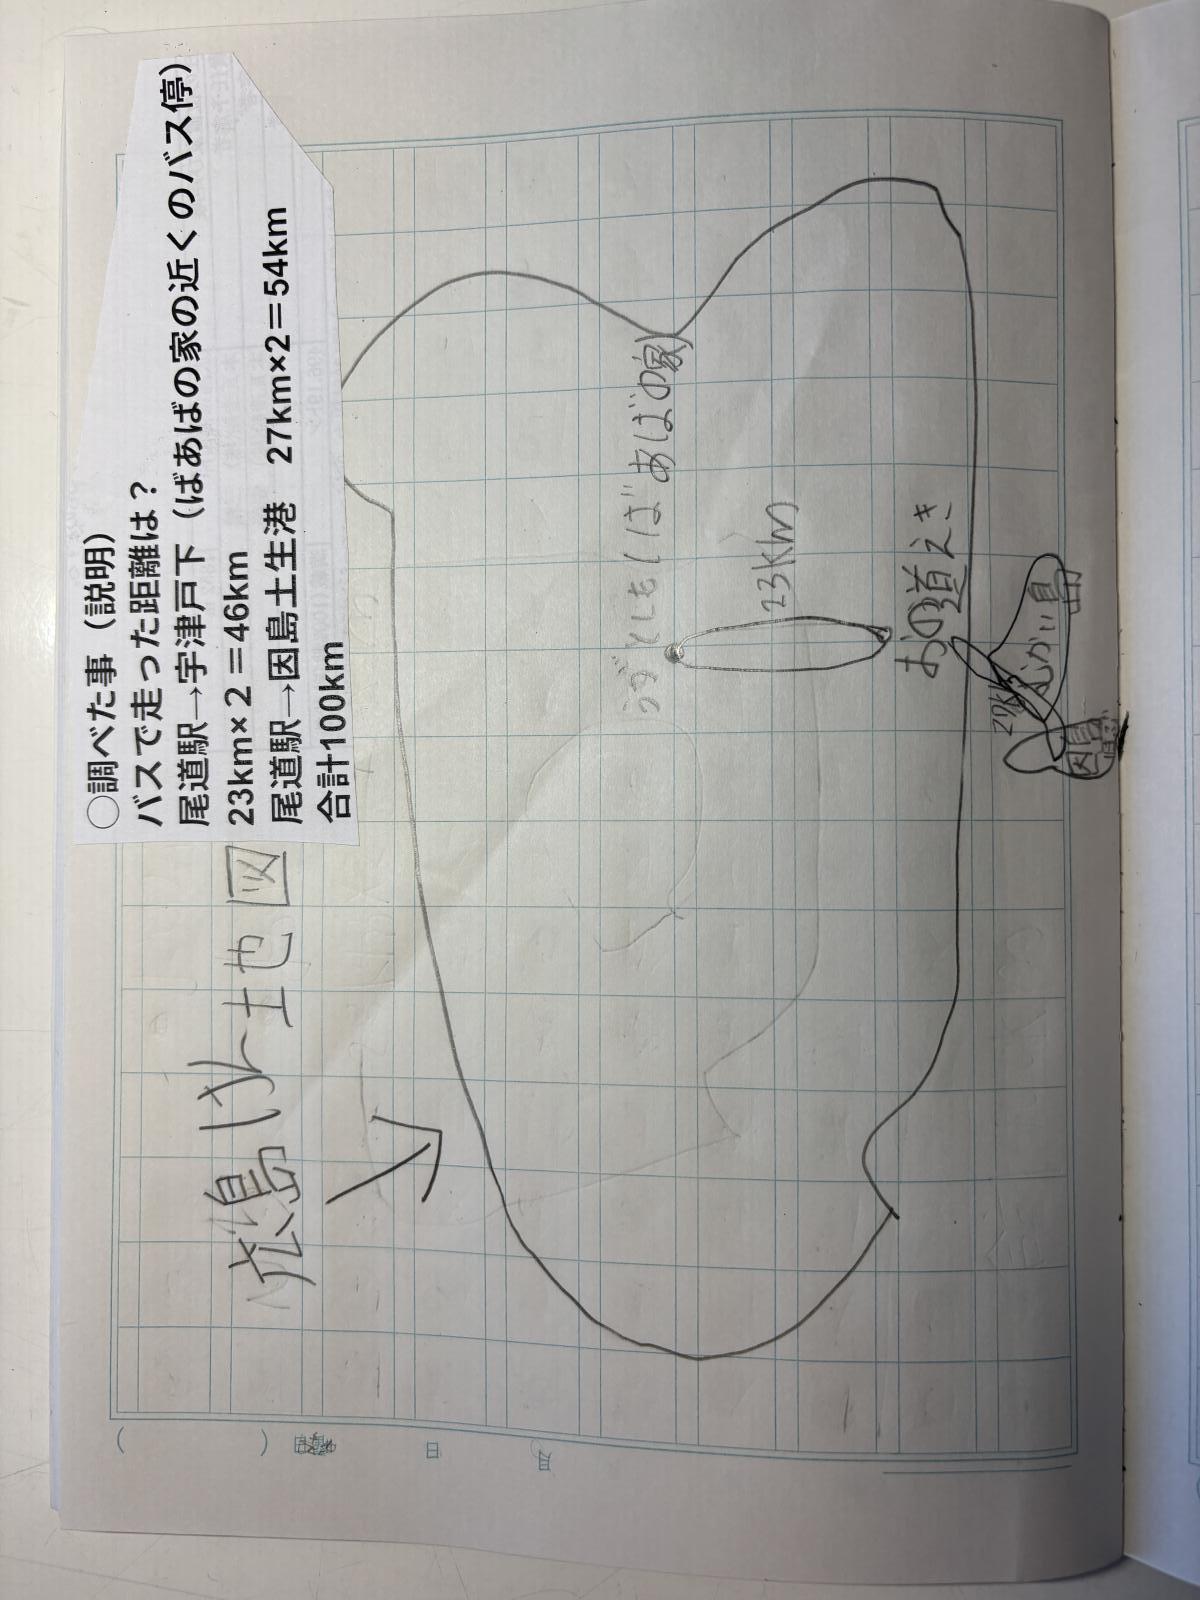 ○調べた事（説明）
バスで走った距離は？
尾道駅→宇津戸下（ばあばの家の近くのバス停）
23km×2＝46km
尾道駅→因島土生港　27km×2＝54km
合計100km
広島けん地図
うづとしも(ばあばの家)
23Km
おの道えき
むかい島
因島
月
日